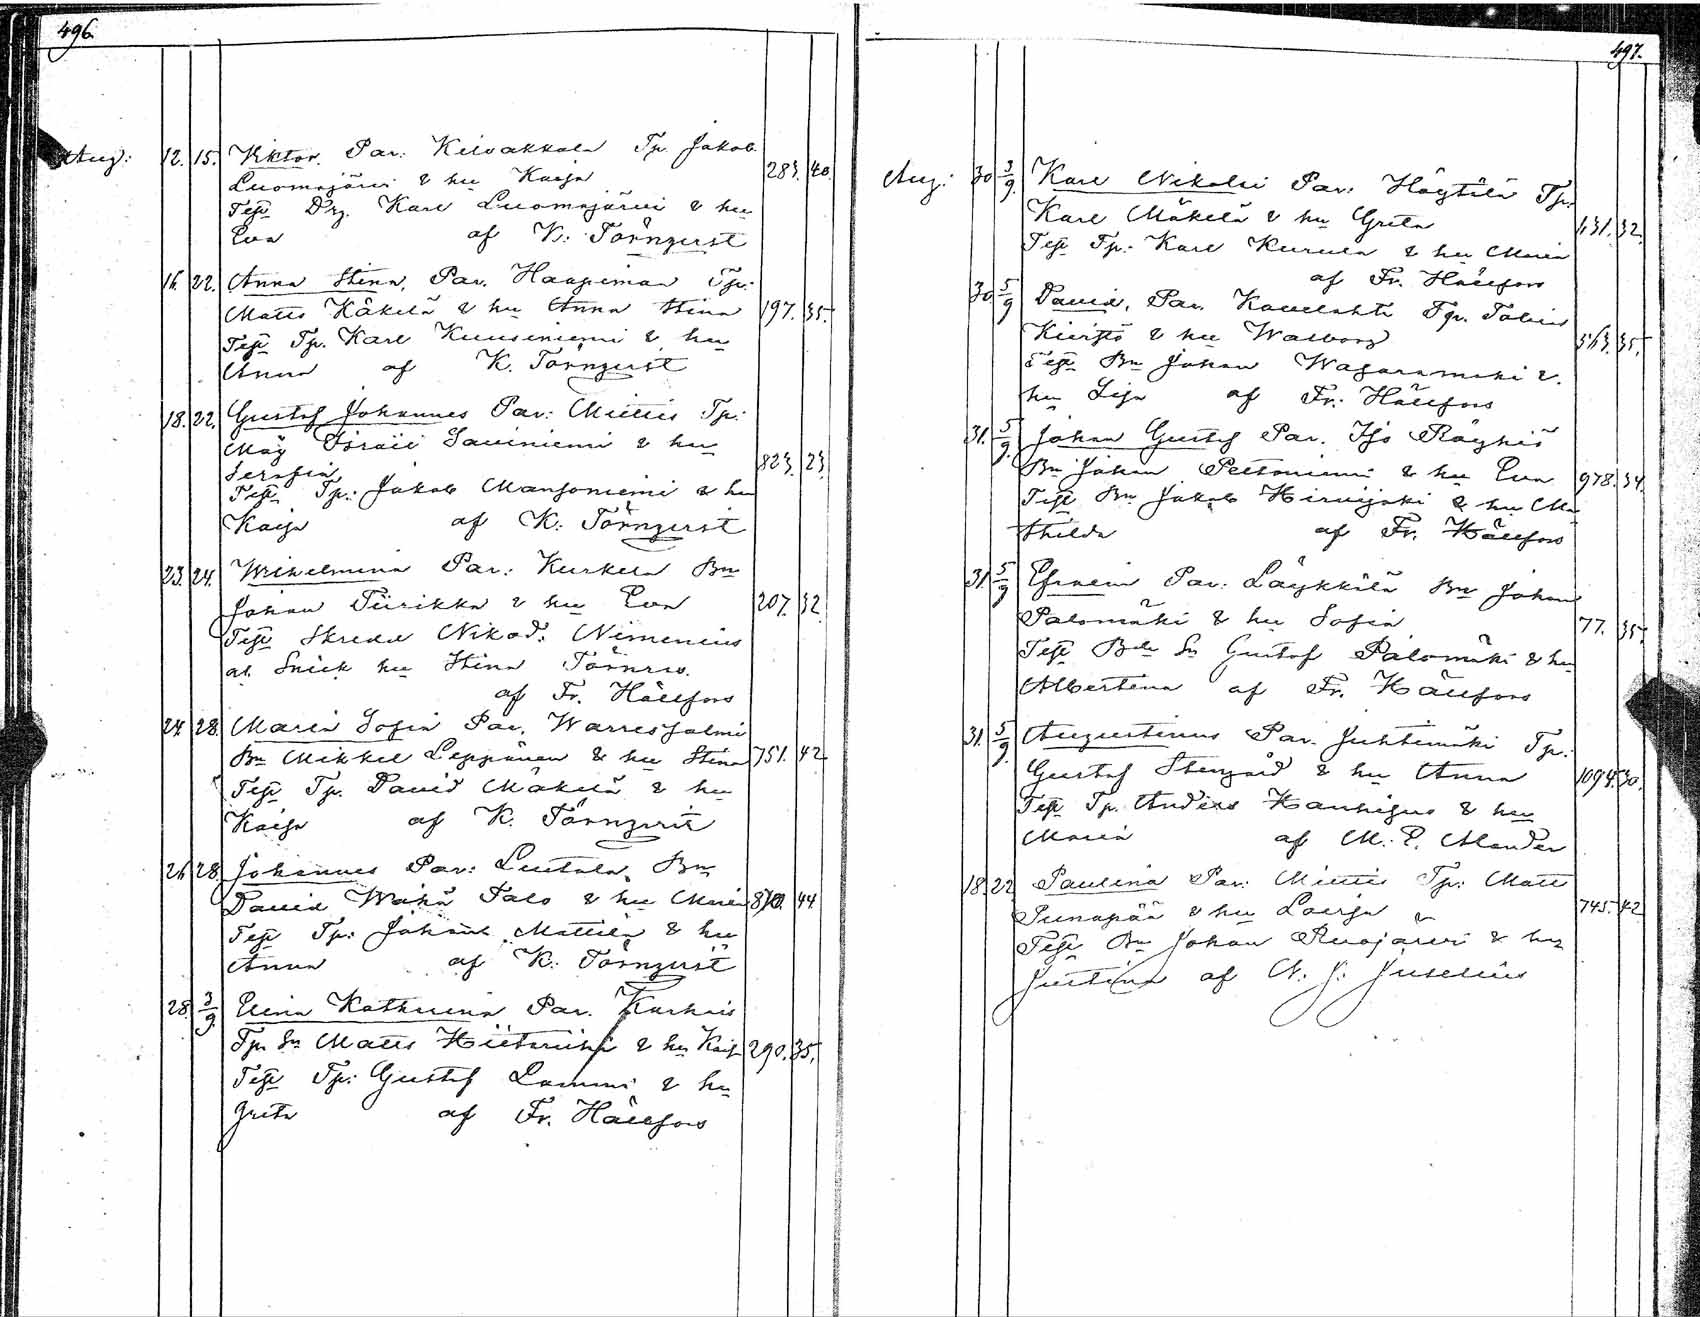 496.
Aug: 12. 15. Viktor. Par: Keivakkala Tp. Jakob
Luomajärvi & hu Kaisa 283. 40.
Test Drg. Karl Luomajärvi & hu
Eva af K: Törnqvist
16. 22. Anna Stina, Par. Haapimaa Tp.
Matts Käkelä & hu Anna Stina 197. 35.
Test Tp. Karl Kuusiniemi & hu
Anna af K. Törnqvist
18. 22. Gustaf Johannes Par: Miettis Tp:
Måg Israel Saviniemi & hu
Serafia 823. 23.
Test Tp: Jakob Mansoniemi & hu
Kaisa af K: Törnqvist
23. 24. Wilhelmina Par: Kurkela Bn
Johan Piirikka & hu Eva 207. 32.
Test Skredd Nikod: Nimenius
a. Snick hu Stina Törnro.
af Fr. Hällfors
24. 28. Maria Sofia Par. Warresjalmi
Bn Mikkel Leppänen & hu Stina 751. 42
Test Tp. David Mäkelä & hu
Kaisa af K. Törnqvist
26 28. Johannes Par: Lustala Bn
David Wähä Talo & hu Maria 870. 44.
Test Tp: Johan Mattila & hu
Anna af K: Törnqvist
28. 3/9. Elina Kathrina Par. Karhais
Tp. Sn Matts & hu Kaisa 290. 35.
Test Tp: Gustaf Lammi & hu
Greta af Fr. Hällfors
497.
Aug: 30 3/9. Karl Nikolai Par: Höytölä Tp:
Karl Mäkelä & hu Greta 1,31. 32.
Test Tp: Karl Kurula & hu Maria
af Fr. Hällfors
30. 5/9 David, Par. Kauvlahti Tp. Tobias
& hu Walborg 563. 35.
Test Bn Johan Wagaramäki &
hu Lisa af Fr: Hällfors
31. 5/9. Johan Gustaf Par. Iso Röyhiö
Bn Johan Peltoniemi & hu Eva 978. 34.
Test Bn Jakob Hirvijoki & hu Ma
thilda af Fr. Hällfors
31. 5/9 Efraim Par: Läykkälä Bn Johan
Palomäki & hu Sofia 77. 35.
Test Bde Sn Gustaf Palomäki & hu
Albertina af Fr. Hällfors
31. 5/9. Augustinus Par. Juhtimäki Tp:
Gustaf Stengård & hu Anna 1094. 30.
Test Tp. Anders & hu
Maria af M. E. Alander
18. 22 Paulina Par: Miettis Tp: Matts
Punapää & hu Loviisa 745. 42
Test Bn Johan Ruojärvi & hu
Justina af N. J. Juselius